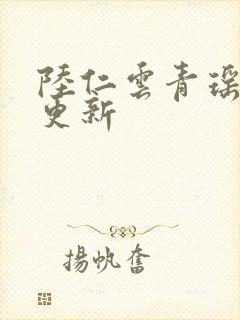 陸仁雲青瑶
更新
揚帆奮